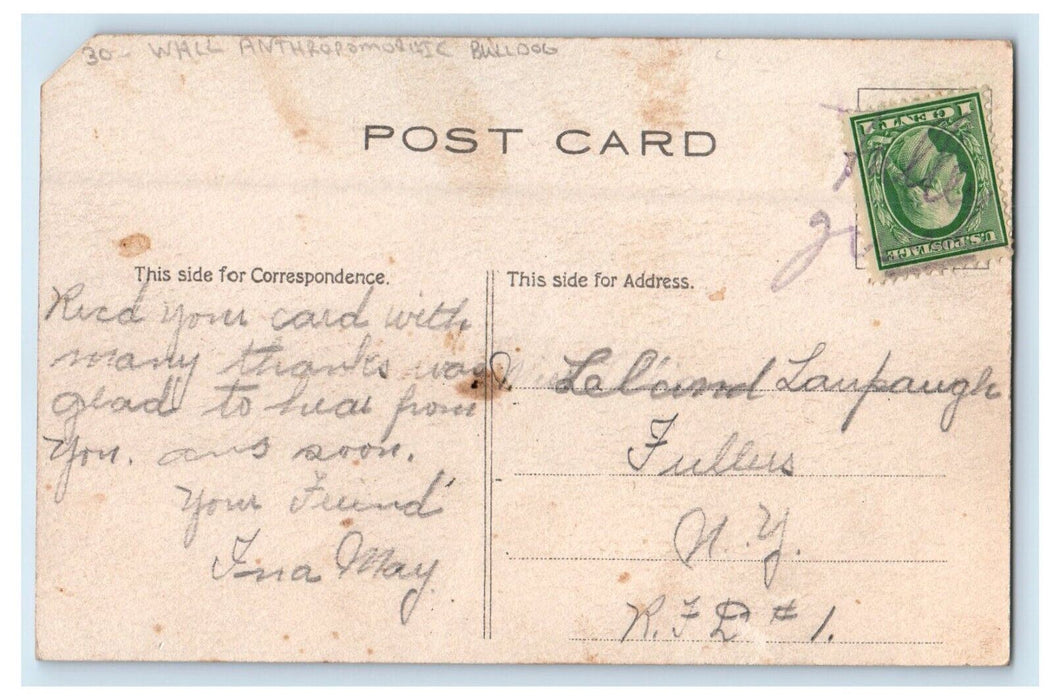 30- WALL ANTHROPOMORPHIC BULLDOG
POST CARD
1 CENT 1
U.S. POSTAGE
This side for Correspondence.
Recd your card with
many thanks was
glad to hear from
you. ans soon.
Your Friend
Ina May
This side for Address.
Leland Laupaugh
Fullers
N.Y.
R.F.D # 1.